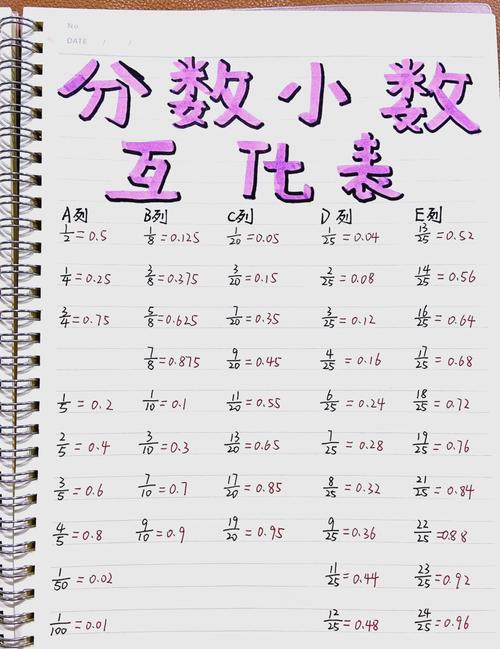 No
DATE / /
分数小数
互化表
A列 B列 C列 D列 E列
1/2=0.5 1/8=0.125 1/20=0.05 1/25=0.04 13/25=0.52
1/4=0.25 3/8=0.375 3/20=0.15 2/25=0.08 14/25=0.56
3/4=0.75 5/8=0.625 7/20=0.35 3/25=0.12 16/25=0.64
7/8=0.875 9/20=0.45 4/25=0.16 17/25=0.68
1/5=0.2 1/10=0.1 11/20=0.55 6/25=0.24 18/25=0.72
2/5=0.4 3/10=0.3 13/20=0.65 7/25=0.28 19/25=0.76
3/5=0.6 7/10=0.7 17/20=0.85 8/25=0.32 21/25=0.84
4/5=0.8 9/10=0.9 19/20=0.95 9/25=0.36 22/25=0.88
1/50=0.02 11/25=0.44 23/25=0.92
1/100=0.01 12/25=0.48 24/25=0.96